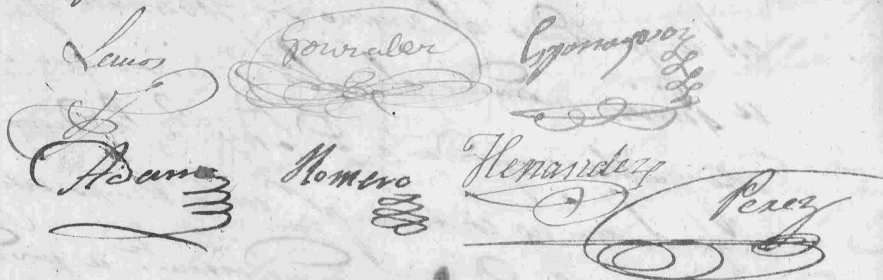 Lemos Gonzalez
Adame Romero Henandez Perez